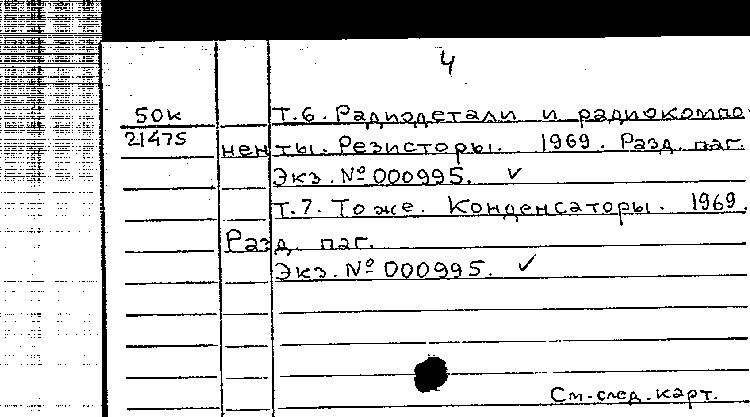 4
50к Т.6. Радиодетали и радиокомпо
21475 ненты. Резисторы. 1969. Разд. паг.
Экз. № 000995. ✓
Т.7. То же. Конденсаторы. 1969.
Разд. паг.
Экз. № 000995. ✓
См. след. карт.